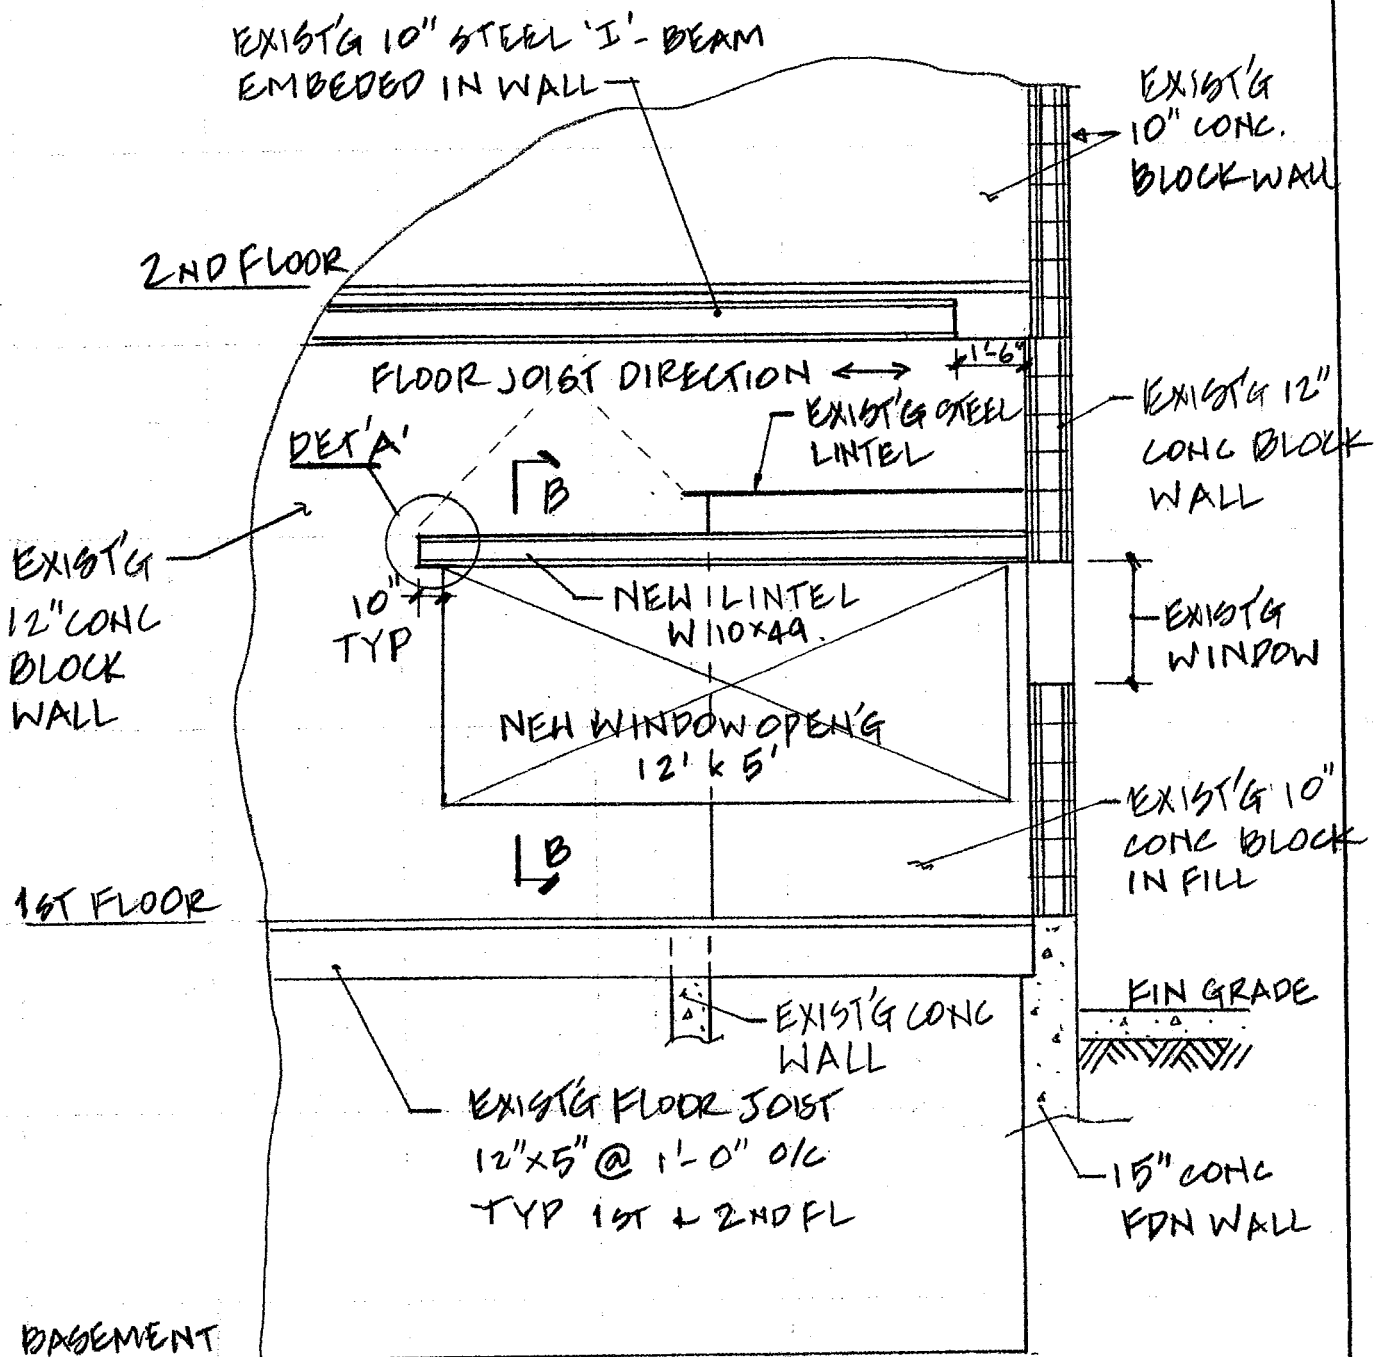 EXIST'G 10" STEEL 'I'- BEAM
EMBEDED IN WALL
EXIST'G
10" CONC.
BLOCK WALL
2ND FLOOR
1'-6"
FLOOR JOIST DIRECTION
EXIST'G STEEL
LINTEL
EXIST'G 12"
CONC BLOCK
WALL
DET 'A'
B
EXIST'G
12" CONC
BLOCK
WALL
10"
TYP
NEW LINTEL
W 10x49.
EXIST'G
WINDOW
NEW WINDOW OPEN'G
12' x 5'
EXIST'G 10"
CONC BLOCK
IN FILL
B
1ST FLOOR
FIN GRADE
EXIST'G CONC
WALL
EXIST'G FLOOR JOIST
12"x5" @ 1'-0" O/C
TYP 1ST & 2ND FL
15" CONC
FDN WALL
BASEMENT